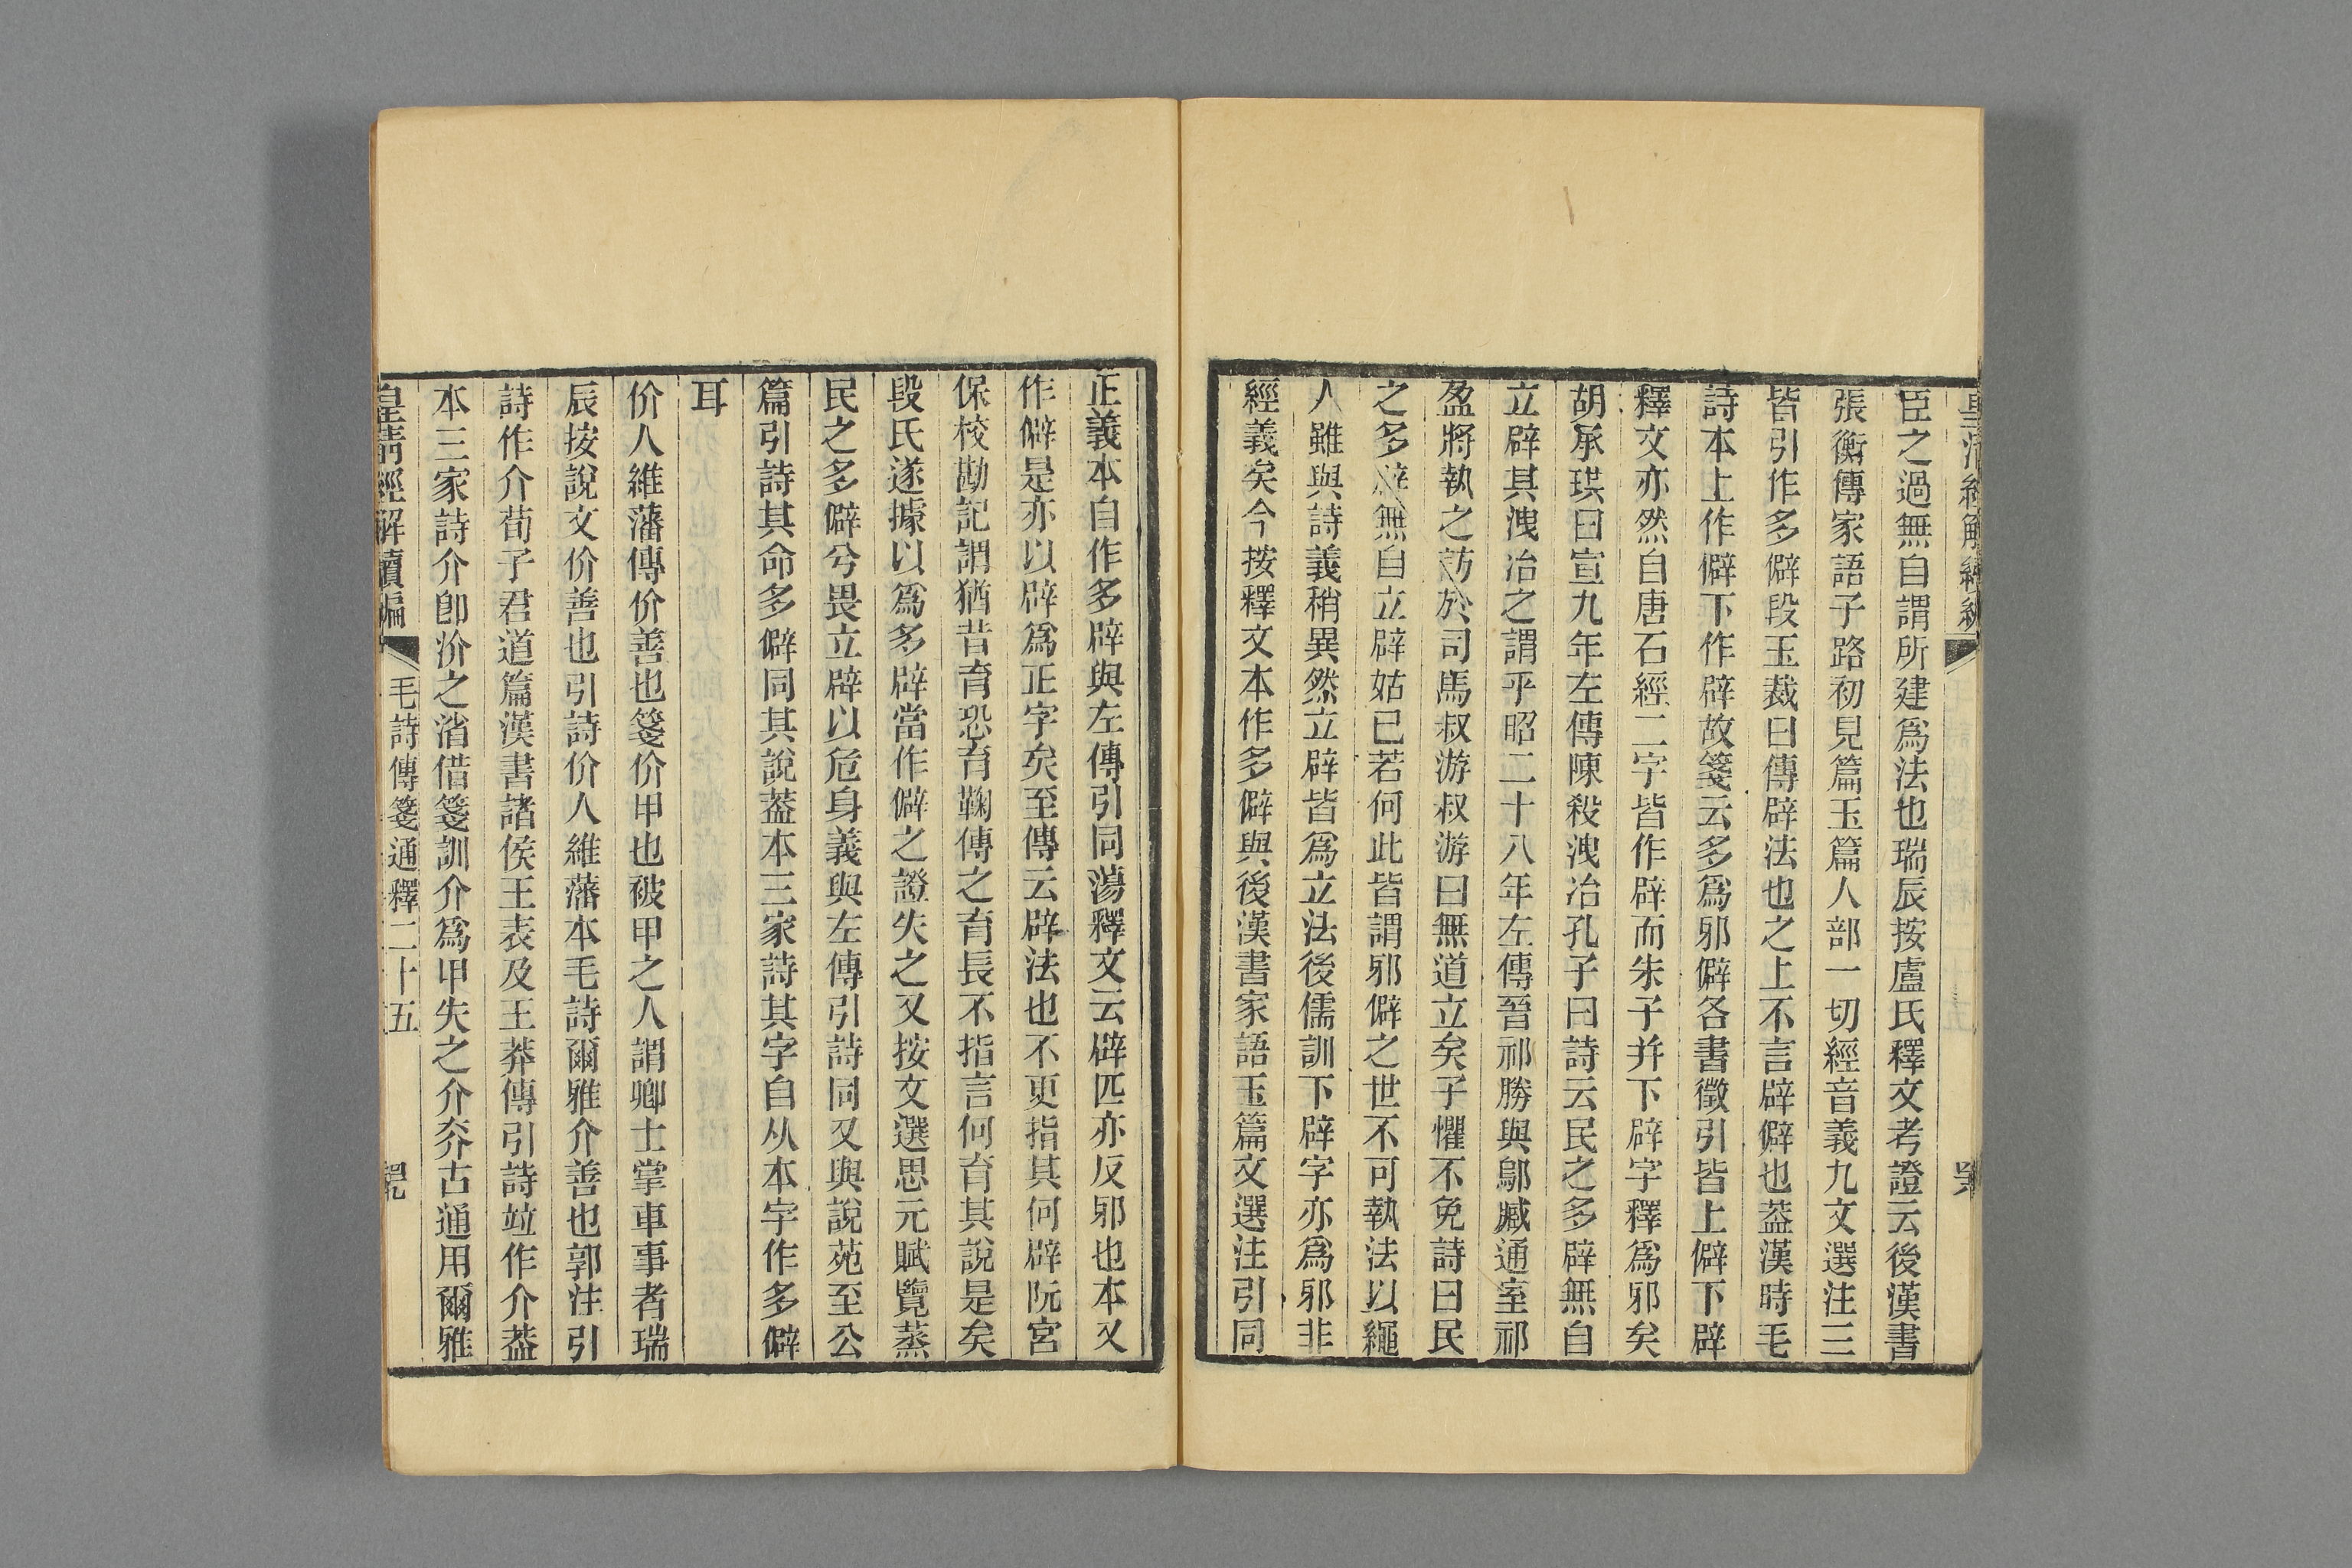 臣之過無自謂所建爲法也瑞辰按盧氏釋文考證云後漢書
張衡傳家語子路初見篇玉篇人部一切經音義九文選注三
皆引作多僻段玉裁曰傳辟法也之上不言辟僻也葢漢時毛
詩本上作僻下作辟故箋云多爲邪僻各書徵引皆上僻下辟
釋文亦然自唐石經二字皆作辟而朱子并下辟字釋爲邪矣
胡承珙曰宣九年左傳陳殺洩冶孔子曰詩云民之多辟無自
立辟其洩冶之謂乎昭二十八年左傳晉祁勝與鄔臧通室祁
盈將執之訪於司馬叔游叔游曰無道立矣子懼不免詩曰民
之多辟無自立辟姑已若何此皆謂邪僻之世不可執法以繩
人雖與詩義稍異然立辟皆爲立法後儒訓下辟字亦爲邪非
經義矣今按釋文本作多僻與後漢書家語玉篇文選注引同
正義本自作多辟與左傳引同蕩釋文云辟匹亦反邪也本又
作僻是亦以辟爲正字矣至傳云辟法也不更指其何辟阮宮
保校勘記謂猶昔育恐育鞠傳之育長不指言何育其說是矣
段氏遂據以爲多辟當作僻之證失之又按文選思元賦覽蒸
民之多僻兮畏立辟以危身義與左傳引詩同又與說苑至公
篇引詩其命多僻同其說葢本三家詩其字自从本字作多僻
耳
价人維藩傳价善也箋价甲也被甲之人謂卿士掌車事者瑞
辰按說文价善也引詩价人維藩本毛詩爾雅介善也郭注引
詩作介荀子君道篇漢書諸侯王表及王莽傳引詩竝作介葢
本三家詩介卽价之渻借箋訓介爲甲失之介夰古通用爾雅
皇清經解續編
毛詩傳箋通釋二十五